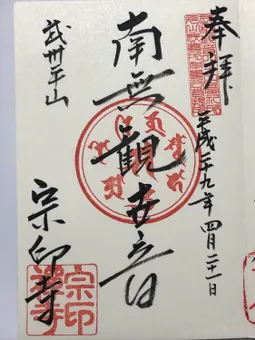 奉拝
平成二十九年四月二十一日
南無観世音
武州平山
宗印寺
宗印